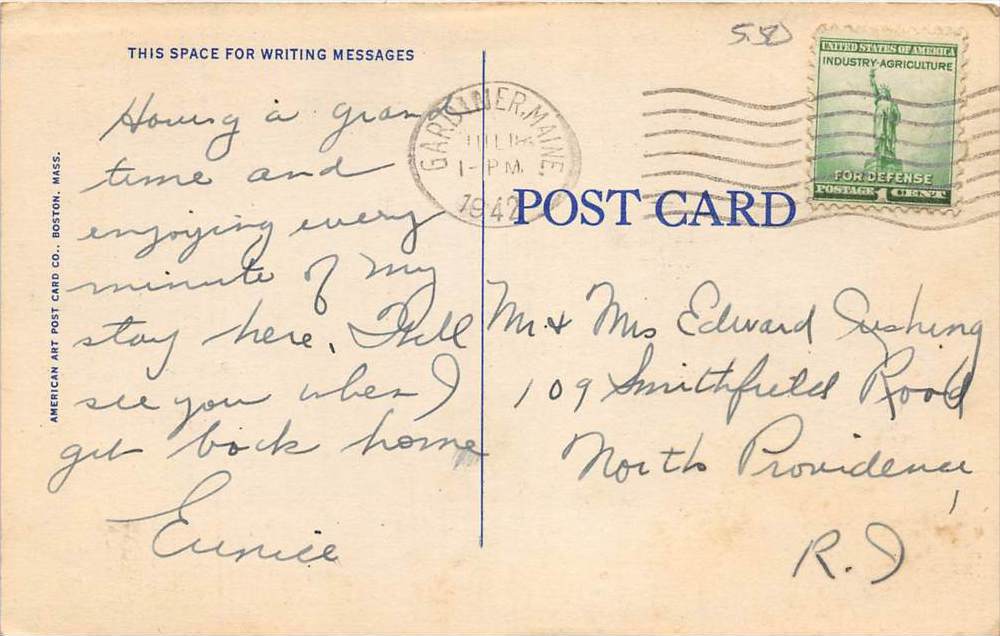 5.50
THIS SPACE FOR WRITING MESSAGES
Having a grand
time and
enjoying every
minute of my
stay here. I'll
see you when I
get back home
Eunice
AMERICAN ART POST CARD CO., BOSTON, MASS.
GARDINER, MAINE
JUL
1-PM.
1942
UNITED STATES OF AMERICA
INDUSTRY-AGRICULTURE
FOR DEFENSE
POSTAGE 1 CENT
POST CARD
Mr + Mrs Edward
109 Smithfield Road
North Providence,
R. I